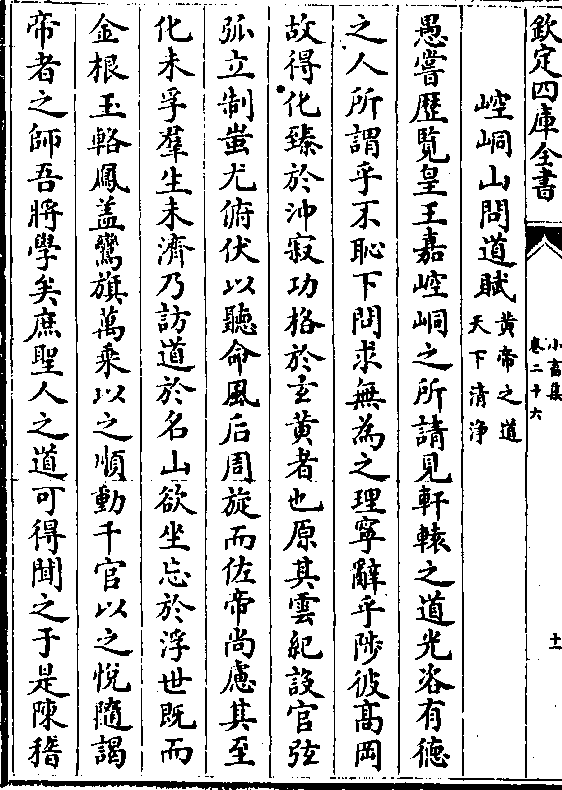 欽定四庫全書
小畜集
卷二十六
十一
崆峒山問道賦
黃帝之道
天下清浄
愚嘗歴覽皇王嘉崆峒之所請見軒轅之道光洽有徳
之人所謂乎不恥下問求無為之理寧辭乎陟彼髙岡
故得化臻於沖寂功格於𤣥黃者也原其雲紀設官弦
弧立制蚩尤俯伏以聽命風后周旋而佐帝尚慮其至
化未孚羣生未濟乃訪道於名山欲坐忘於浮世既而
金根玉輅鳳盖鸞旗萬乘以之順動千官以之悅隨謁
帝者之師吾將學矣庶聖人之道可得聞之于是陳稽